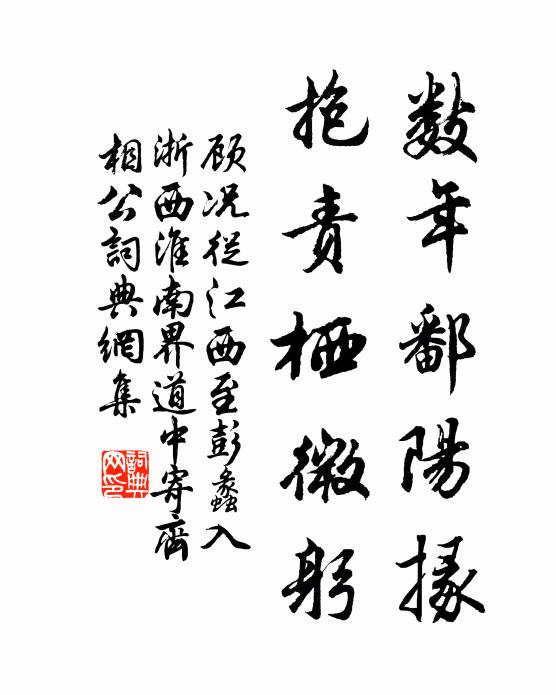 數年鄱陽掾
抱責栖微躬
顧况從江西至彭蠡入
浙西淮南界道中寄齊
相公詞典網集
詞典网印